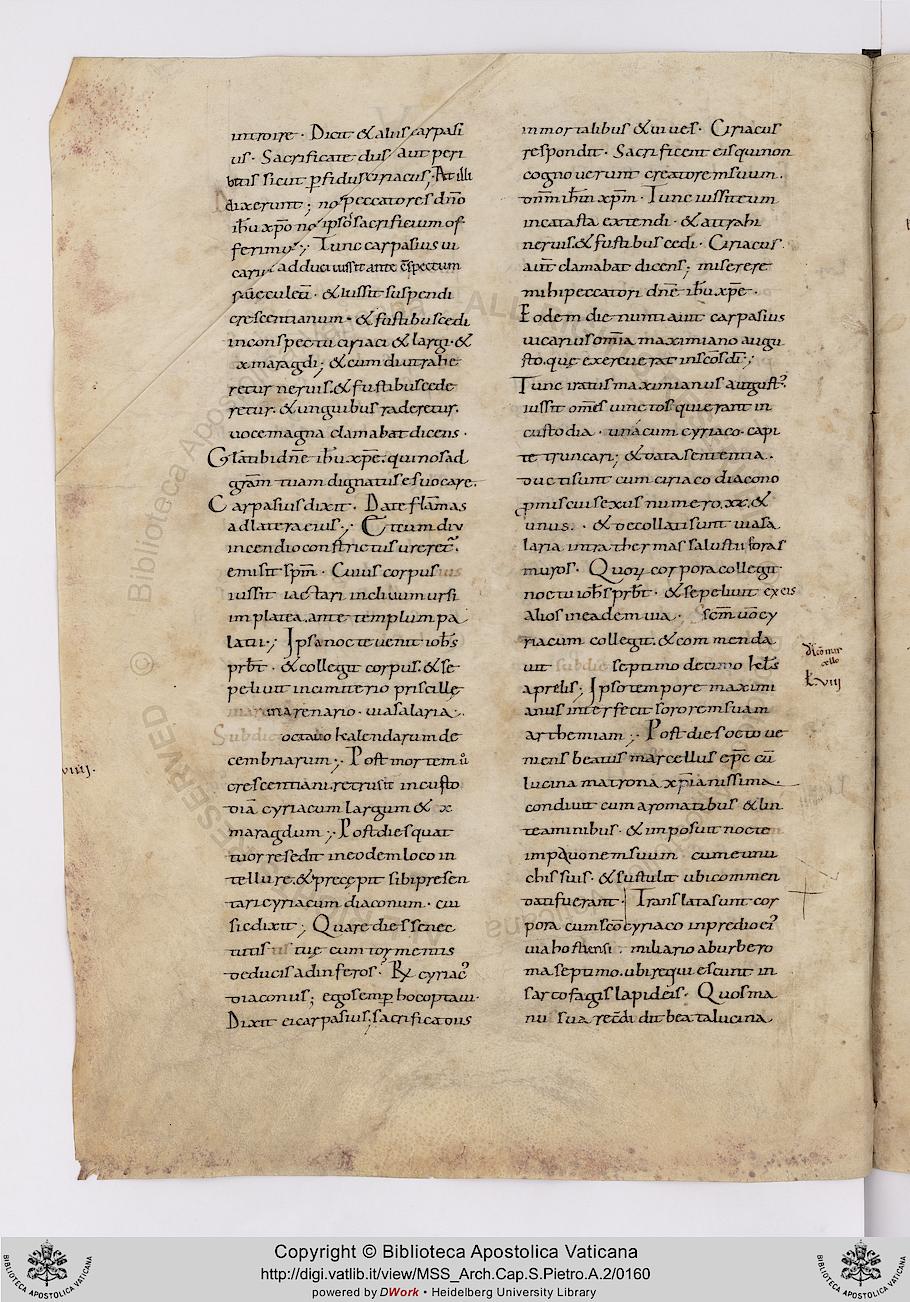 introire · Dicit & alius carpasi
us · Sacrificate diis aut peri
bitis sicut ꝑfidus ciriacus; At illi
dixerunt; nos peccatores dño
ihu xp̄o nos ipsos sacrificium of
ferimus; Tunc carpasius ui
carius adduci iussit ante c̄spectum
crescentianum · & fustibus cedi
inconspectu ciriaci & largi · &
xmaragdi; & cum diutrahe
retur neruis & fustibus cede
retur · & unguibus raderetur ·
uoce magna clamabat dicens ·
Glā tibi dn̄e ihū xp̄e · qui nos ad
grām tuam dignatus es uocare ·
Carpasius dixit · Date flāmas
ad latera eius · Et cum diu
incendio constrictus ureret̄ ·
emisit sp̄m · Cuius corpus
iussit iactari in cliuum ursi
in platea · ante templum pa
latii · Ipsa nocte uenit ioh̄s
prb̄t · & collegit corpus · & se
peliuit incimiterio priscille
in arenario · uia salaria ·
octauo kalendarum de
cembriarum · Post mortem ů
crescentiani · retrusit in custo
diā cyriacum largum & x
maragdum · Post dies quat
tuor resedit in eodem loco in
tellure · & precepit sibi presen
tari cyriacum diaconum · cui
sic dixit; Quare dies senec
tutis tue cum tormentis
deducis ad inferos · R̄ cyriacus
diaconus; ego semꝑ hoc optaui ·
Dixit ei carpasius; sacrifica diis
inmortalibus & uiues · Ciriacus
respondit · Sacrificent eis qui non
cognouerunt creatorem suum ·
dn̄m ihm xp̄m · Tunc iussit eum
in catasta extendi · & attrahi
neruis & fustibus cedi · Ciriacus
aut̄ clamabat dicens; miserere
mihi peccatori dn̄e ihū xp̄e ·
Eodem die nuntiauit carpasius
uicarius om̄ia maximiano augu
sto · que exercuerat in sc̄os dī;
Tunc iratus maximianus august'
iussit om̄es uinctos qui erant in
custodia · una cum cyriaco · capi
te truncari; & data sententia ·
ducti sunt cum ciriaco diacono
ꝓmiscui sexus numero · xx · &
unus · & decollati sunt uia sa
laria intra thermas salustii foras
muros · Quoꝝ corpora collegit
noctu ioh̄s prb̄t · & sepeliuit ex eis
alios in eadem uia · Sc̄m uō cy
riacum collegit · & commenda
uit sub die septimo decimo kl̄s
aprelis; Ipso tempore maximi
anus interfecit sororem suam
arthemiam · Post dies octo ue
niens beatus marcellus ep̄c cū
lucina matrona xp̄ianissima ·
condiuit cum aromatibus & lin
teaminibus · & imposuit nocte
cum eunu
chis suis · & sustulit ubi commen
dati fuerant · Translata sunt cor
pora cum sc̄o cyriaco in predio ei'
uia hostiensi · miliario ab urbe ro
ma septimo · ubi requiescunt in
sarcofagis lapideis · Quos ma
nu sua recōdidit beata lucina
viiij ·
Copyright © Biblioteca Apostolica Vaticana
http://digi.vatlib.it/view/MSS_Arch.Cap.S.Pietro.A.2/0160
powered by DWork • Heidelberg University Library
BIBLIOTECA APOSTOLICA VATICANA
BIBLIOTECA APOSTOLICA VATICANA